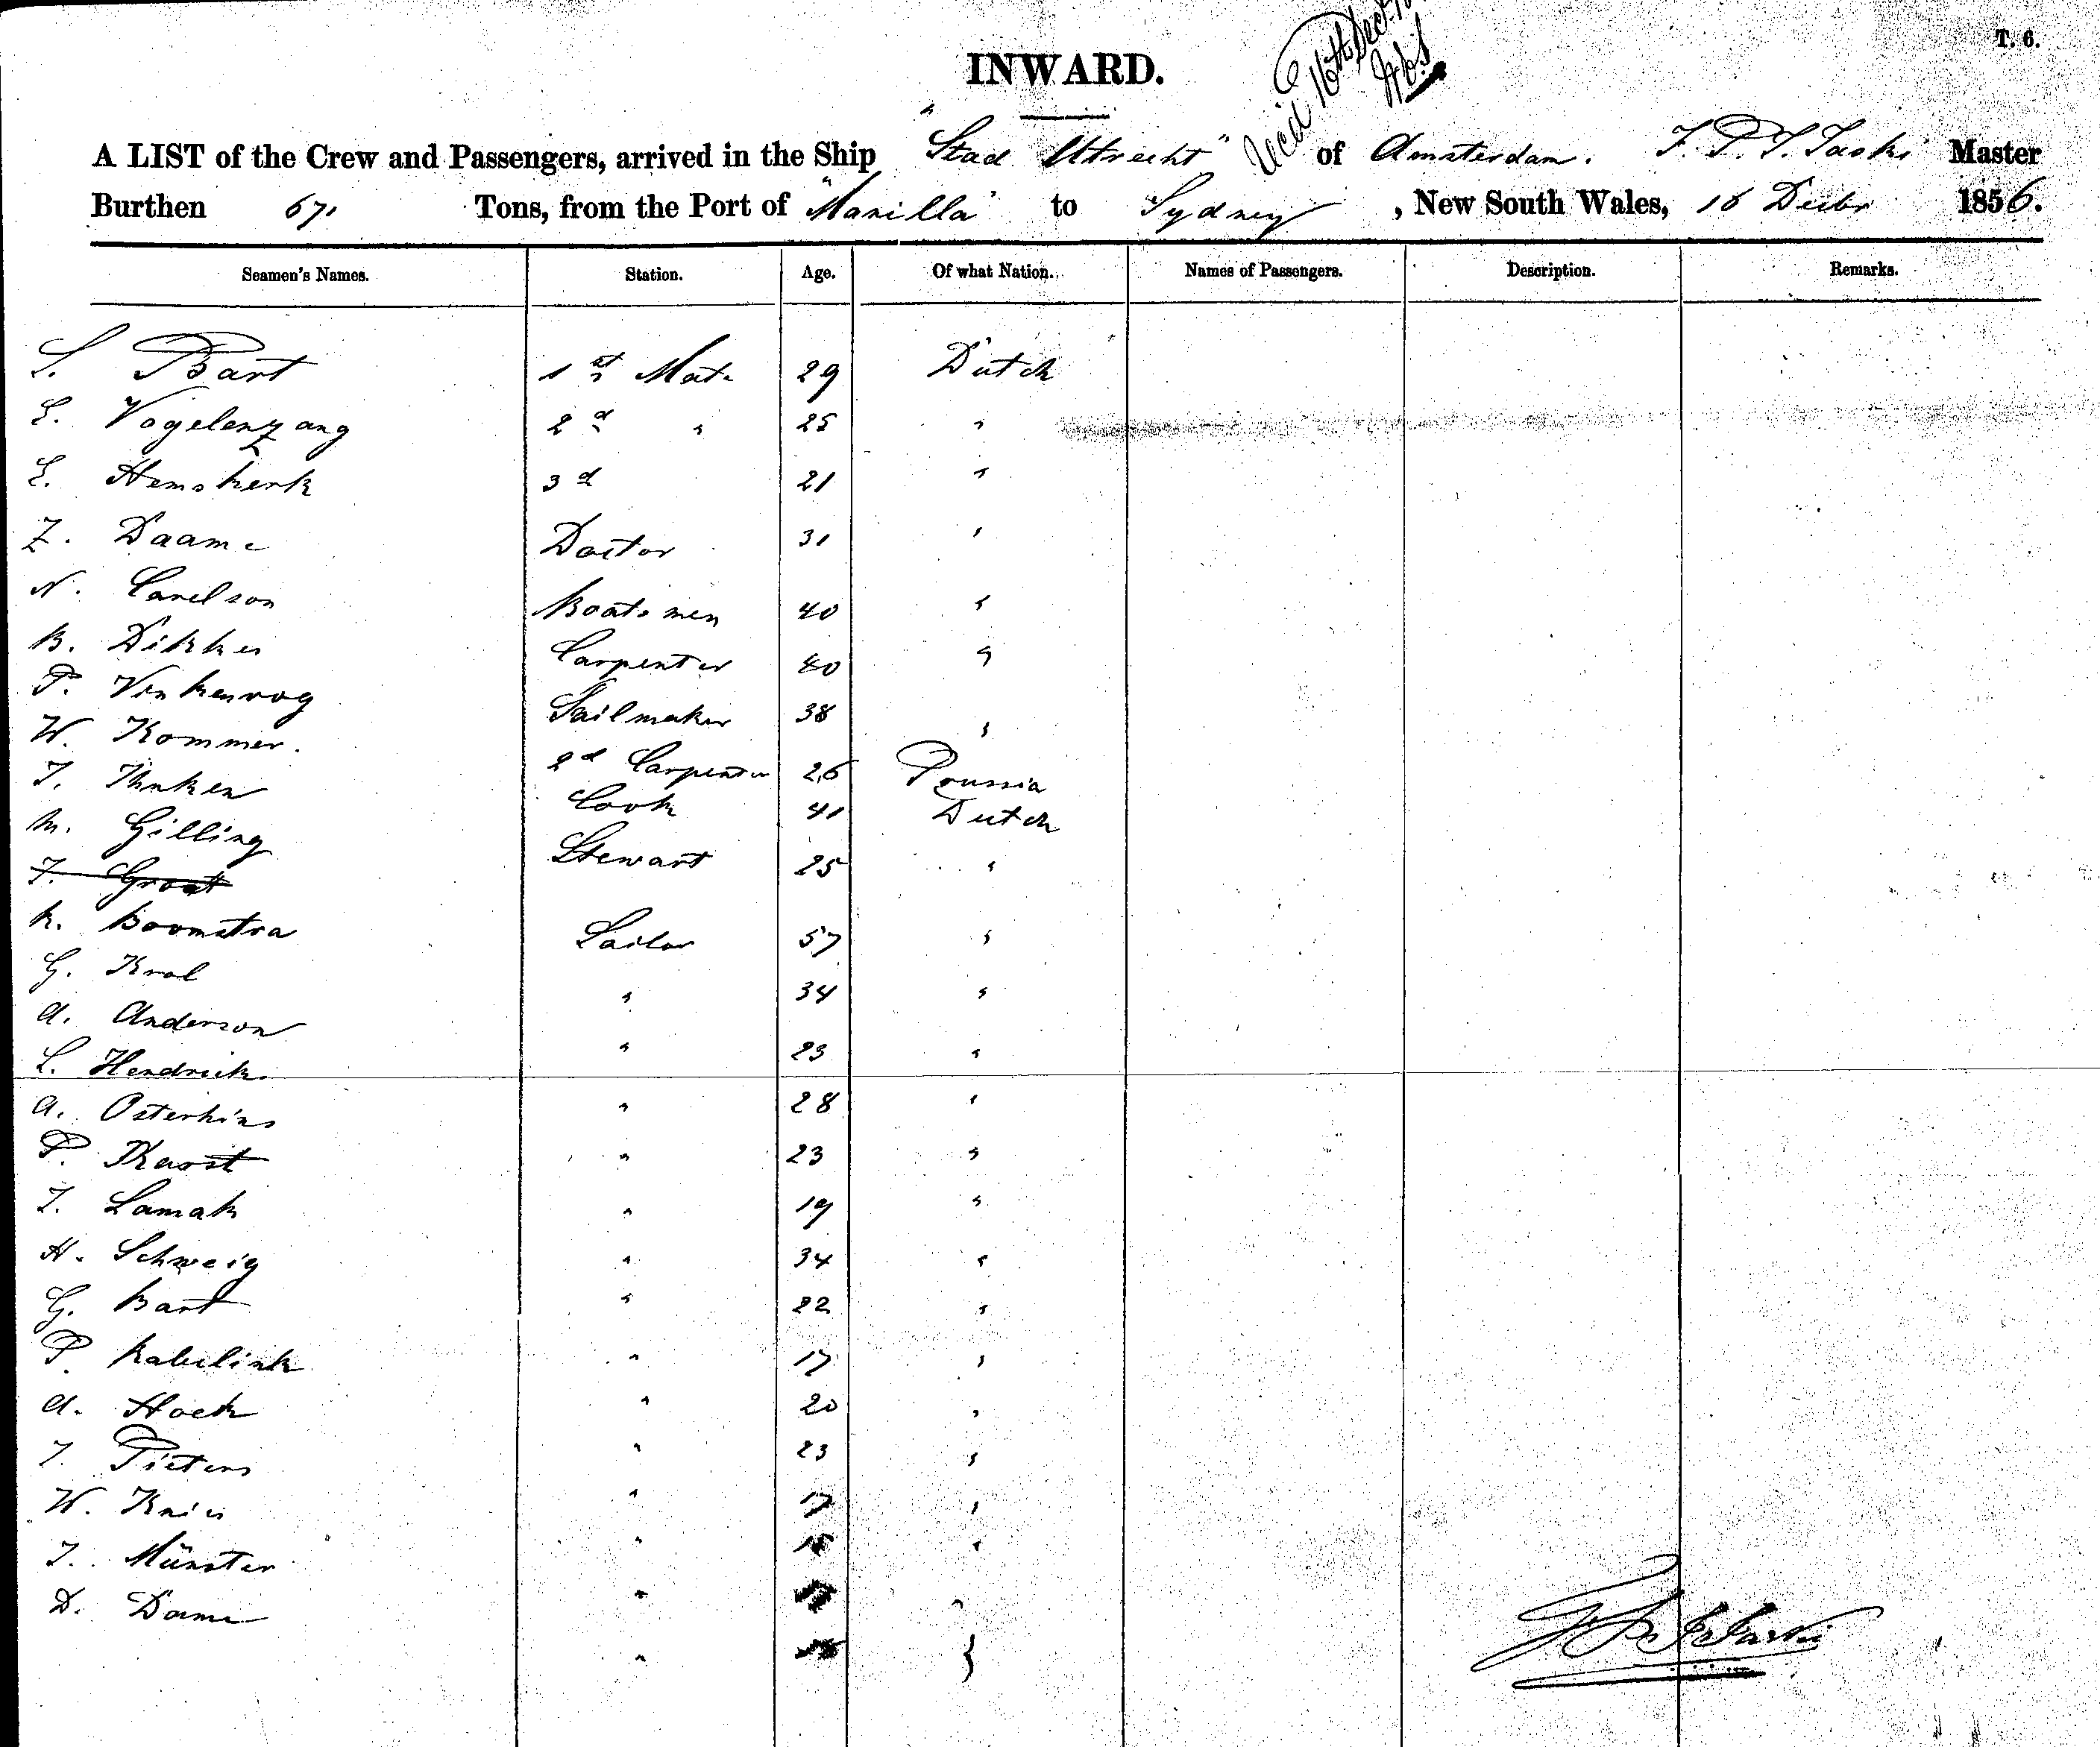 T. 6.
INWARD.
Recd 16th Dec.
A LIST of the Crew and Passengers, arrived in the Ship "Stad Utrecht" of Amsterdam. Master
Burthen 671 Tons, from the Port of "Manilla" to Sydney, New South Wales, 16 Decbr 1856.
Seamen's Names. Station. Age. Of what Nation. Names of Passengers. Description. Remarks.
S. Bart 1st Mate 29 Dutch
L. Vogelenzang 2d " 25 "
L. Hemskerk 3d 21 "
Z. Daame Doctor 31 "
N. Carelson Boatsmen 40 "
B. Dikker Carpenter 40 "
P. Vinkenvog Sailmaker 38 "
W. Kommer. 2d Carpenter 26 Prussia
J. Cook 41 Dutch
M. Gilling Stewart 25 "
J. Groat
K. Boomstra Sailor 57 "
G. Krol " 34 "
A. Anderson " 23 "
L. Hendricks " 28 "
A. " 23 "
P. " 19 "
J. Lamak " 34 "
H. Schweig " 22 "
G. Bart " 17 "
P. Kabelink " 20 "
A. Hoek " 23 "
J. Pieters " 17 "
W. " "
J. Münster " "
D. Dame " }